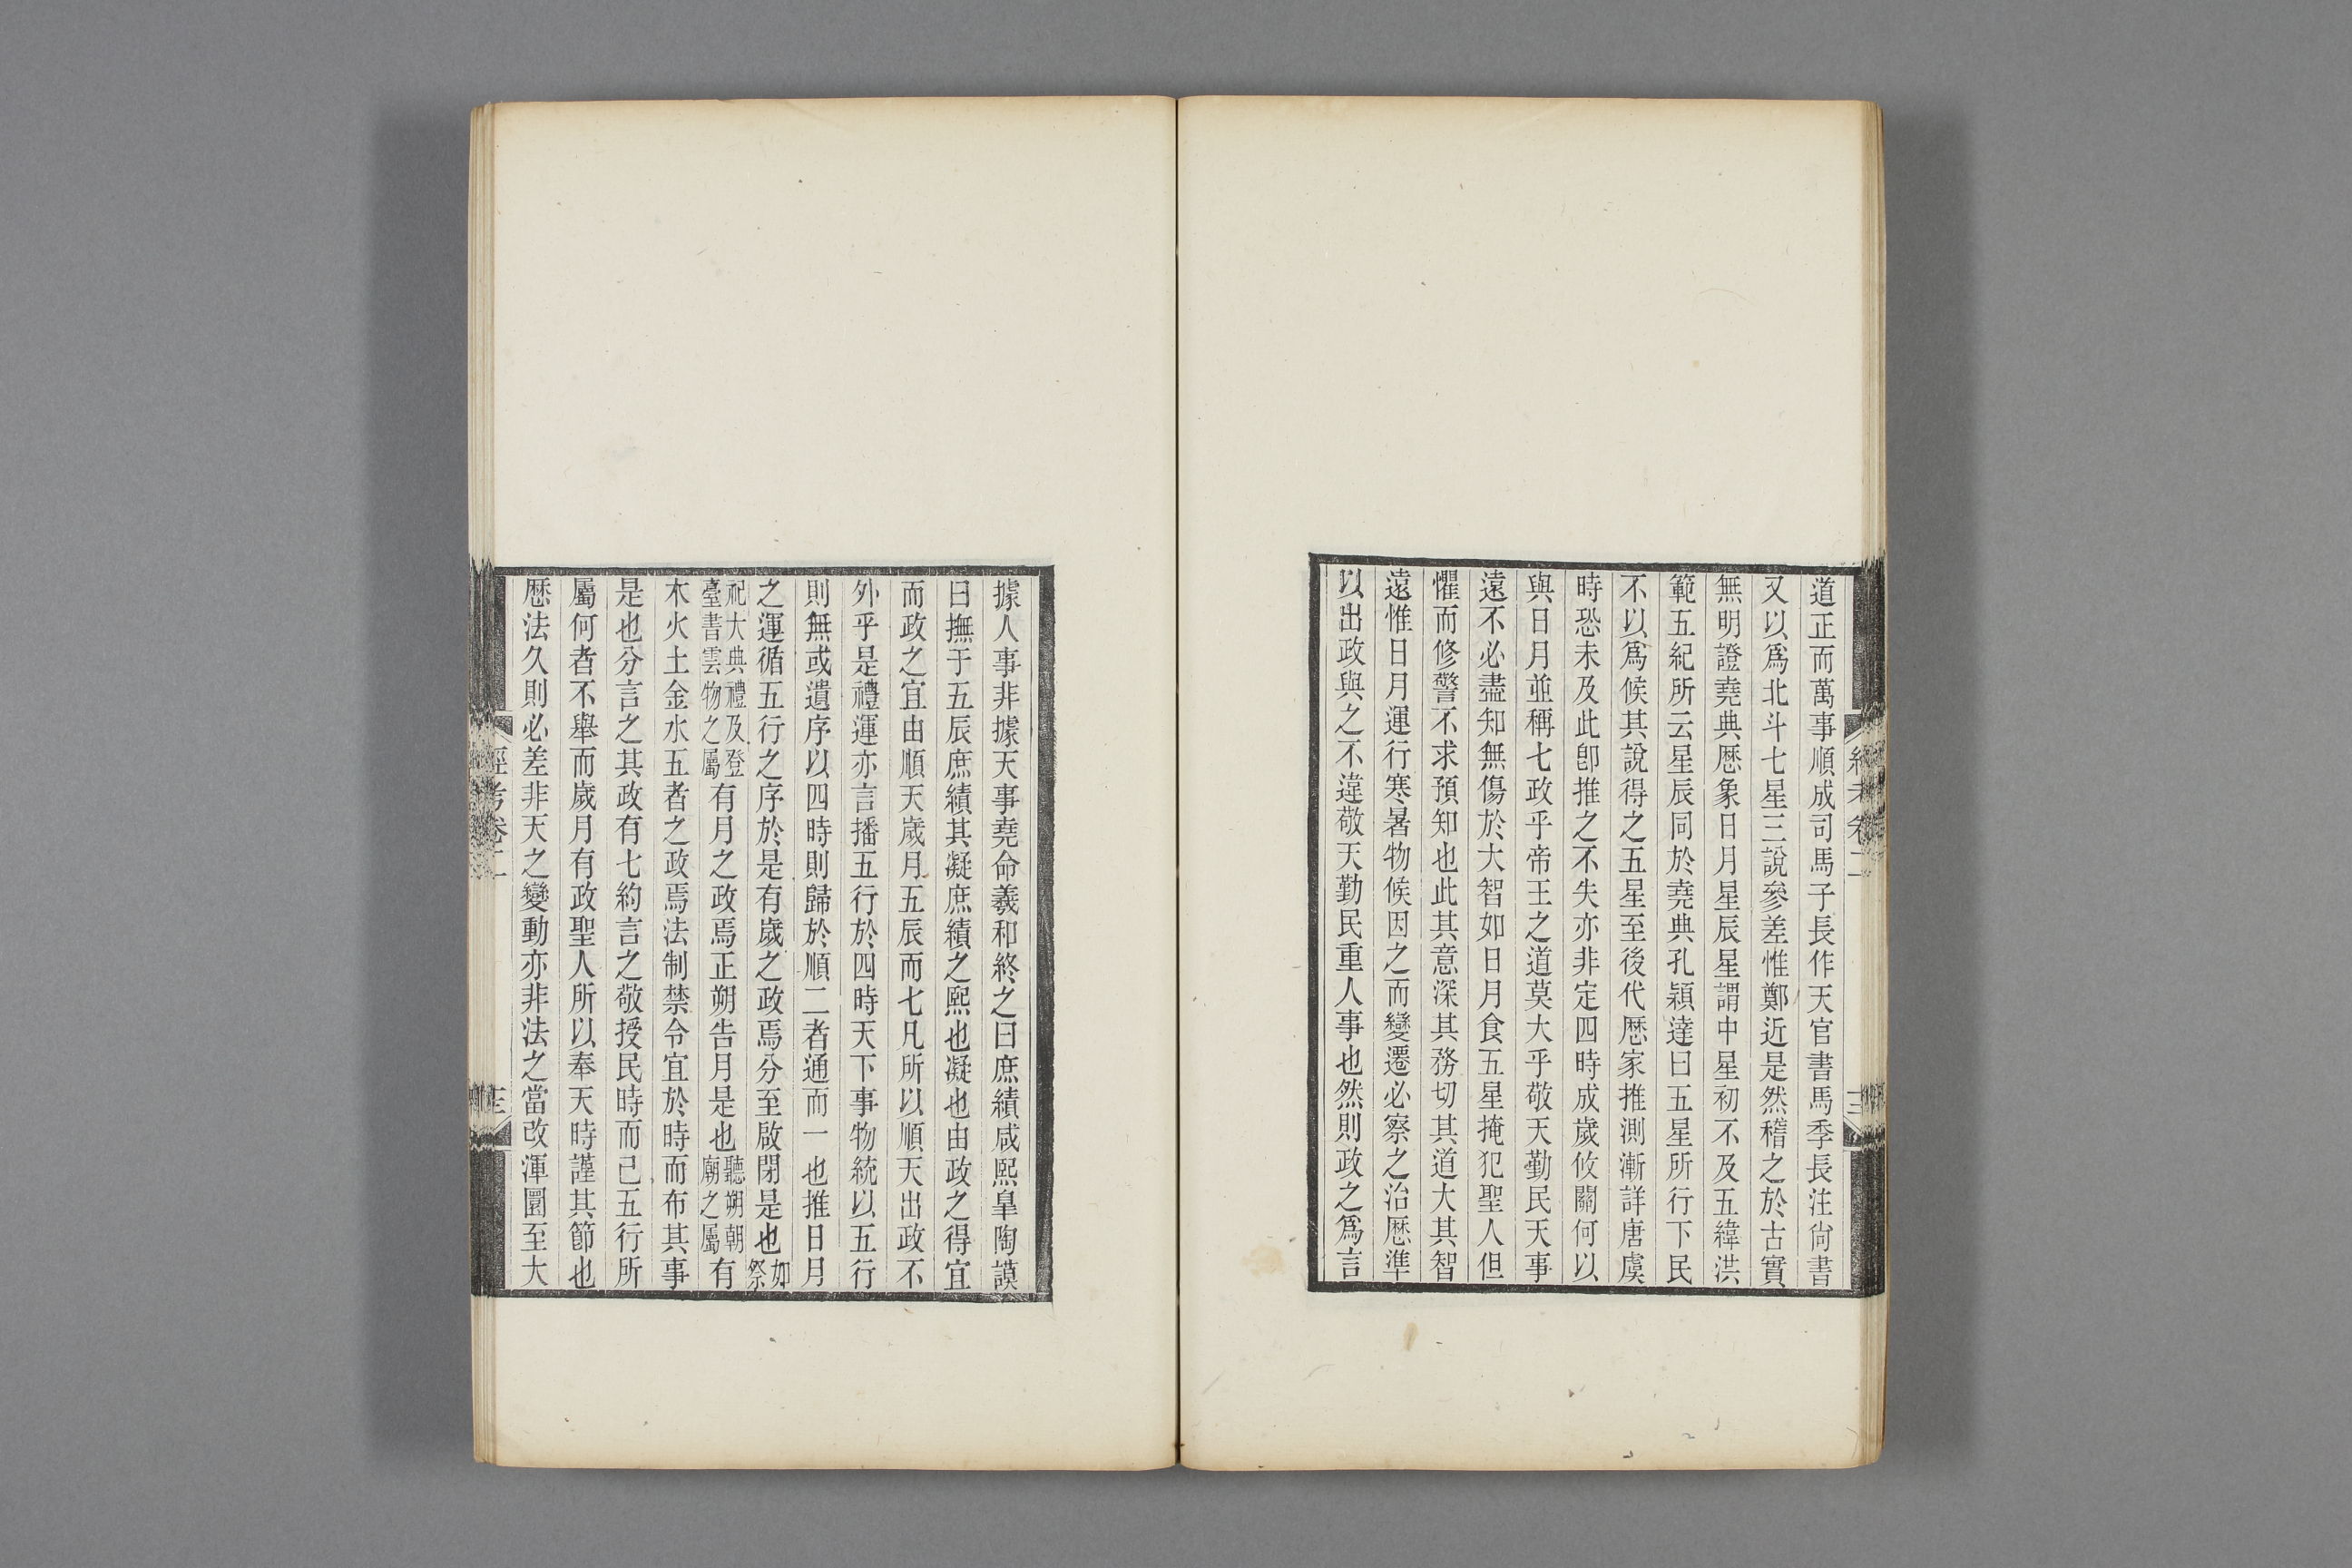 道正而萬事順成司馬子長作天官書馬季長注尙書
又以爲北斗七星三說參差惟鄭近是然稽之於古實
無明證堯典厯象日月星辰星謂中星初不及五緯洪
範五紀所云星辰同於堯典孔穎達曰五星所行下民
不以爲候其說得之五星至後代厯家推測漸詳唐虞
時恐未及此卽推之不失亦非定四時成歲攸關何以
與日月並稱七政乎帝王之道莫大乎敬天勤民天事
遠不必盡知無傷於大智如日月食五星掩犯聖人但
懼而修警不求預知也此其意深其務切其道大其智
遠惟日月運行寒暑物候因之而變遷必察之治厯準
以出政與之不違敬天勤民重人事也然則政之爲言
據人事非據天事堯命羲和終之曰庶績咸熙皐陶謨
曰撫于五辰庶績其凝庶績之熙也凝也由政之得宜
而政之宜由順天歲月五辰而七凡所以順天出政不
外乎是禮運亦言播五行於四時天下事物統以五行
則無或遺序以四時則歸於順二者通而一也推日月
之運循五行之序於是有歲之政焉分至啟閉是也如祭
祀大典禮及登臺書雲物之屬有月之政焉正朔告月是也聽朔朝廟之屬有
木火土金水五者之政焉法制禁令宜於時而布其事
是也分言之其政有七約言之敬授民時而已五行所
屬何者不舉而歲月有政聖人所以奉天時謹其節也
厯法久則必差非天之變動亦非法之當改渾圜至大
經考卷二